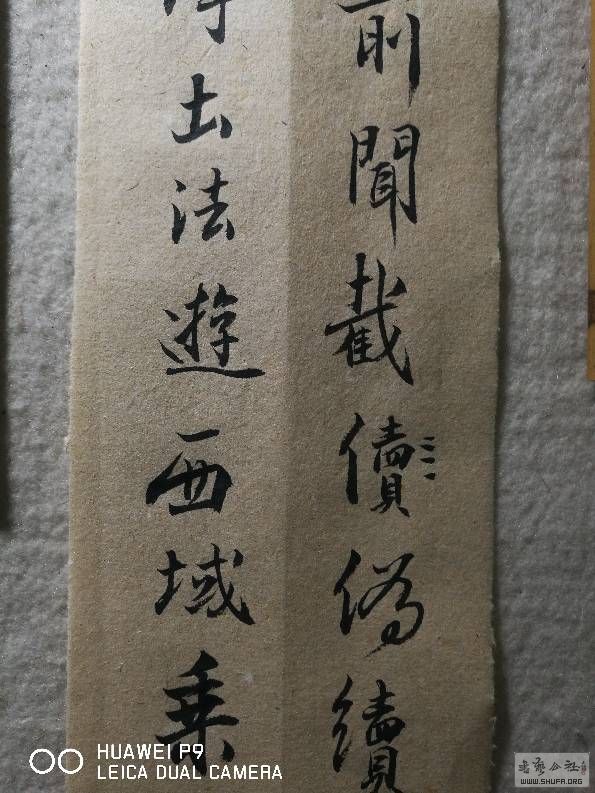 前聞截儥偽續
土法遊西域乗
HUAWEI P9
LEICA DUAL CAMERA
WWW.SHUFA.ORG